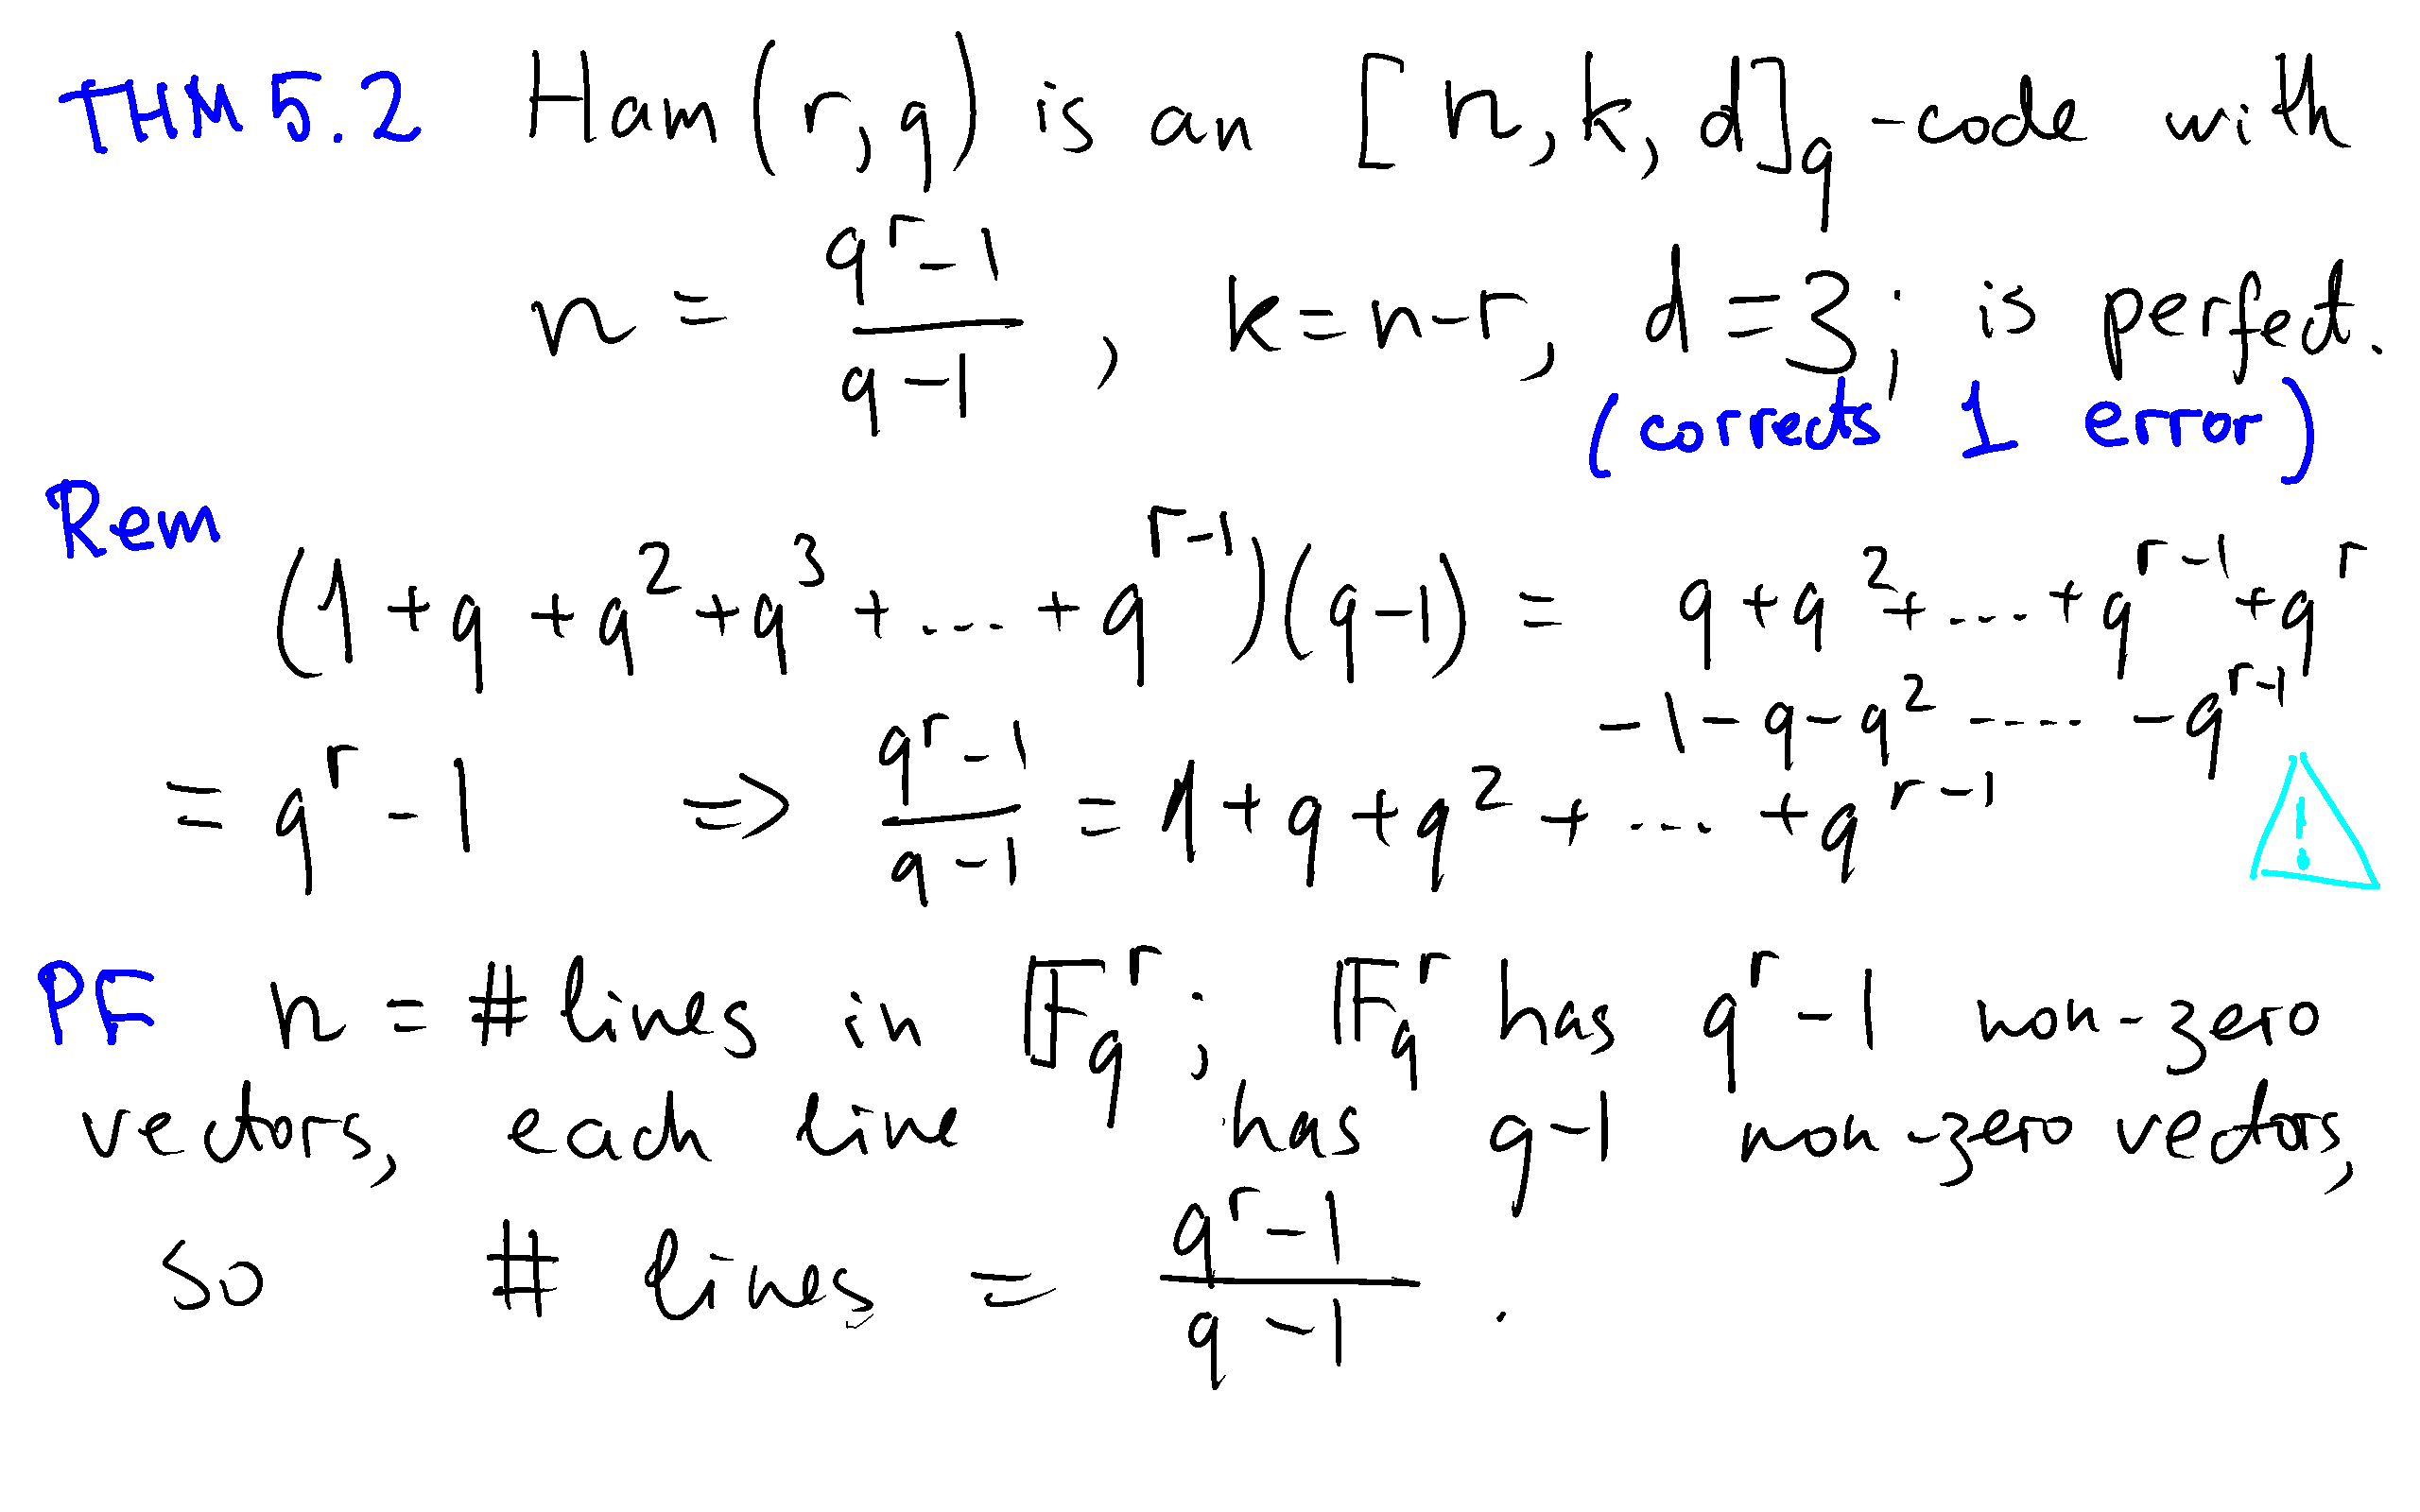 THM 5.2 Ham(r,q) is an [n, k, d]_q -code with
n = (q^r - 1)/(q - 1), k = n-r, d = 3; is perfect.
(corrects 1 error)
Rem
(1 + q + q^2 + q^3 + ... + q^{r-1})(q-1) = q + q^2 + ... + q^{r-1} + q^r
-1 - q - q^2 ---- - q^{r-1}
= q^r - 1 ⇒ (q^r - 1)/(q - 1) = 1 + q + q^2 + ... + q^{r-1} !
PF n = # lines in 𝔽_q^r; 𝔽_q^r has q^r - 1 non-zero
vectors, each line has q-1 non-zero vectors,
so # lines = (q^r - 1)/(q - 1).